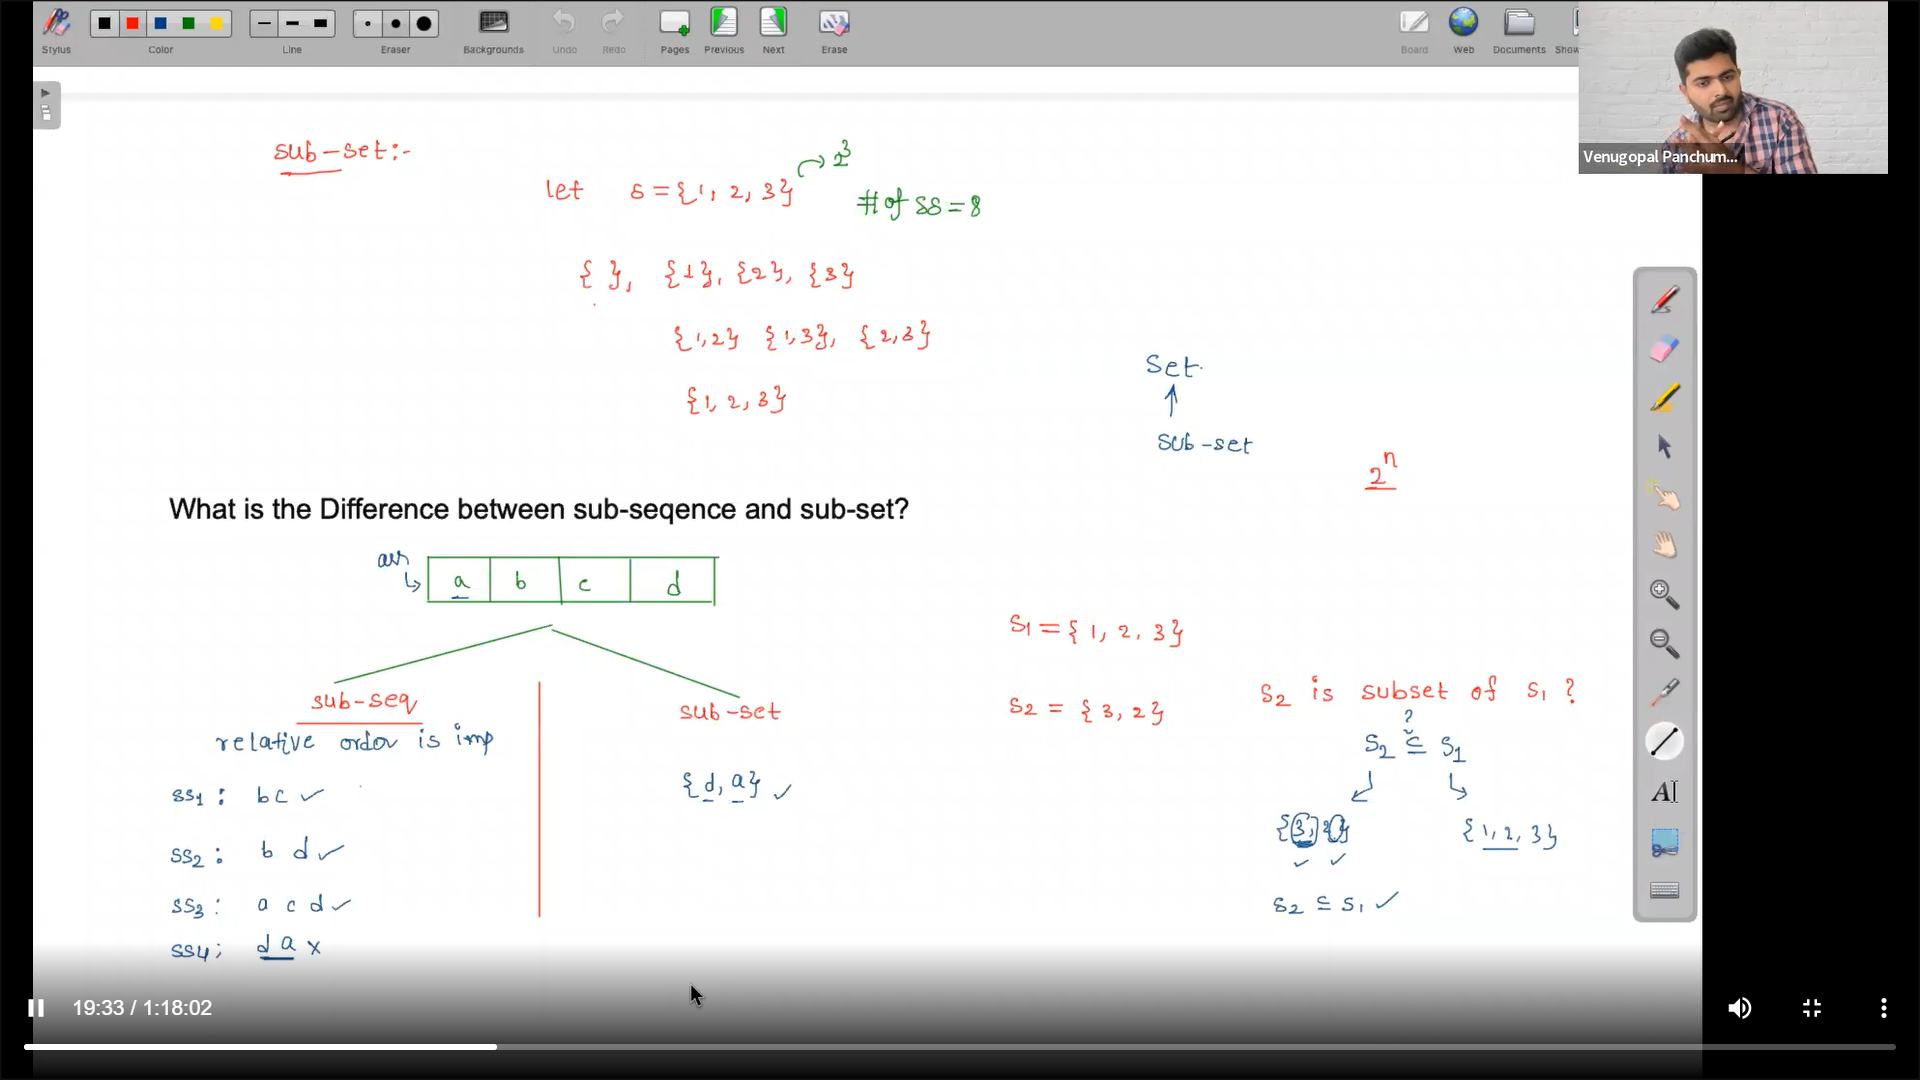 Stylus
Color
Line
Eraser
Backgrounds
Undo
Redo
Pages
Previous
Next
Erase
Board
Web
Documents
Show
Venugopal Panchum...
sub-set:-
let s = {1, 2, 3} → 2³
# of ss = 8
{ }, {1}, {2}, {3}
{1,2} {1,3}, {2,3}
{1, 2, 3}
Set
↑
sub-set
2ⁿ
What is the Difference between sub-seqence and sub-set?
arr
a b c d
sub-seq
relative order is imp
ss1 : bc ✓
ss2 : b d ✓
ss3 : a c d ✓
ss4 ; d a x
sub-set
{d, a} ✓
S1 = {1, 2, 3}
S2 = {3, 2}
S2 is subset of S1 ?
?
S2 ⊆ S1
{3, 2}
{1, 2, 3}
✓ ✓
S2 ⊆ S1 ✓
AI
19:33 / 1:18:02